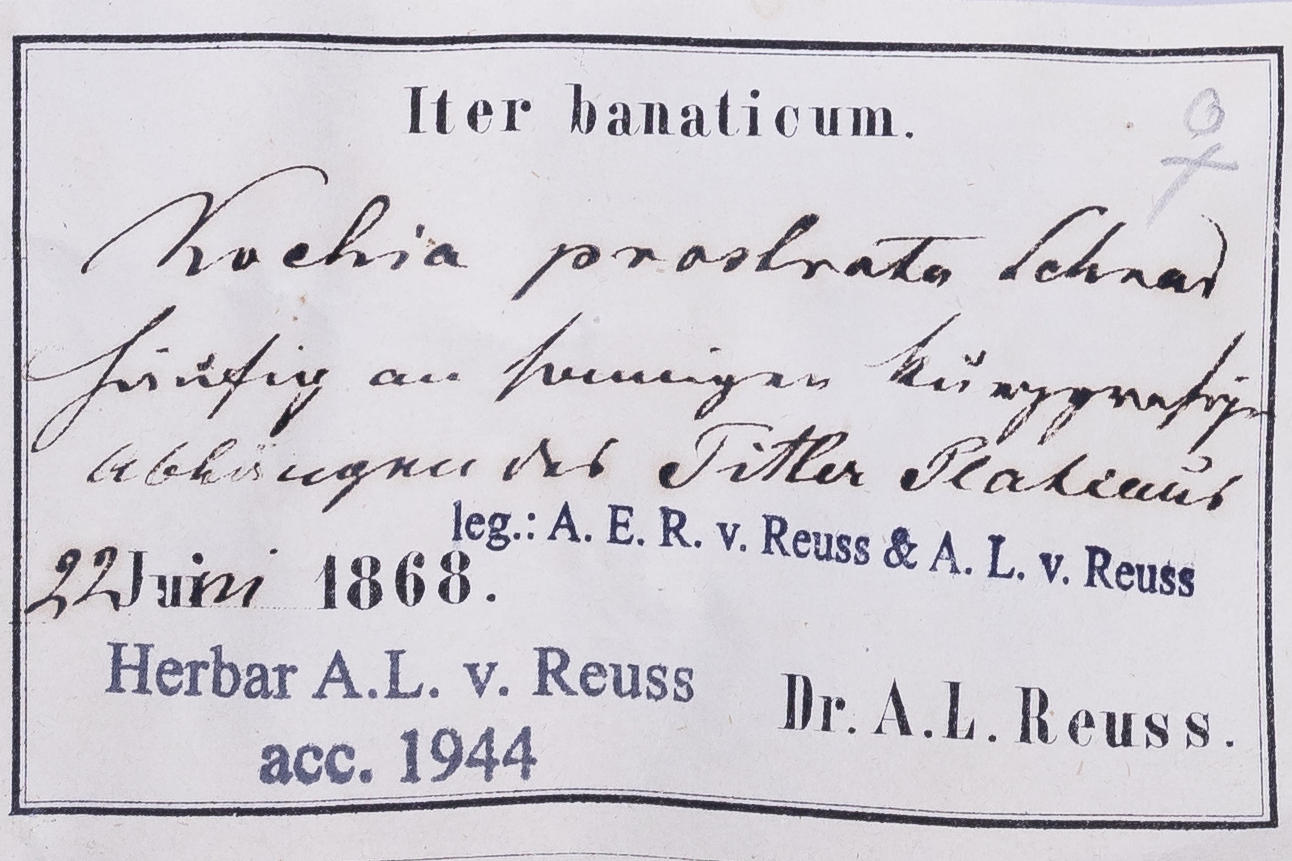 Iter banaticum.
Kochia prostrata Schrad
häufig an sonnigen kurzgrasigen
Abhängen des Titler Plateaus
leg.: A. E. R. v. Reuss & A. L. v. Reuss
22 Juni 1868.
Herbar A.L. v. Reuss
Dr. A.L. Reuss.
acc. 1944